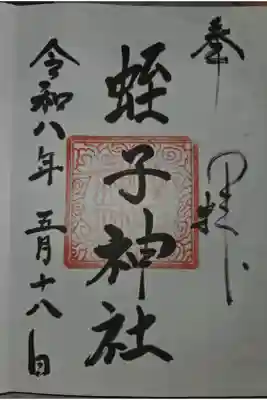 奉拝
蛭子神社
令和八年 五月十八日